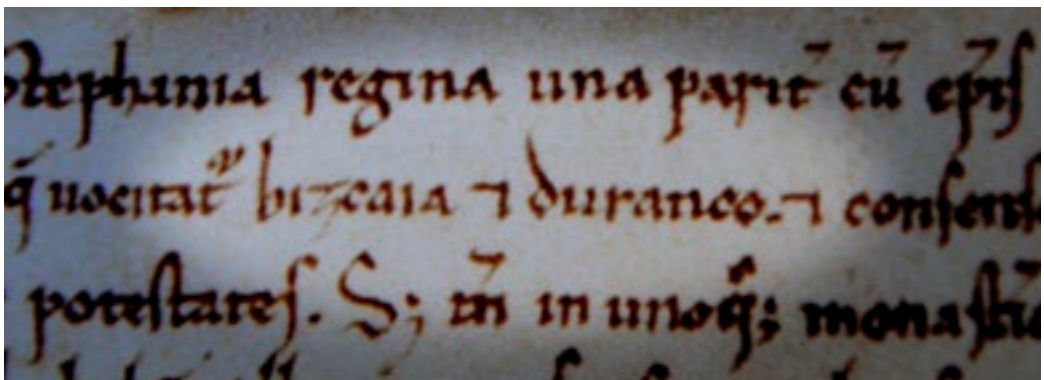 Stephania regina una parit̄ cū ep̄is
q̄ uocitatᷣ bizcaia ⁊ duranco. ⁊ consens
potestates. S; tn̄ in unoq̄; monastē